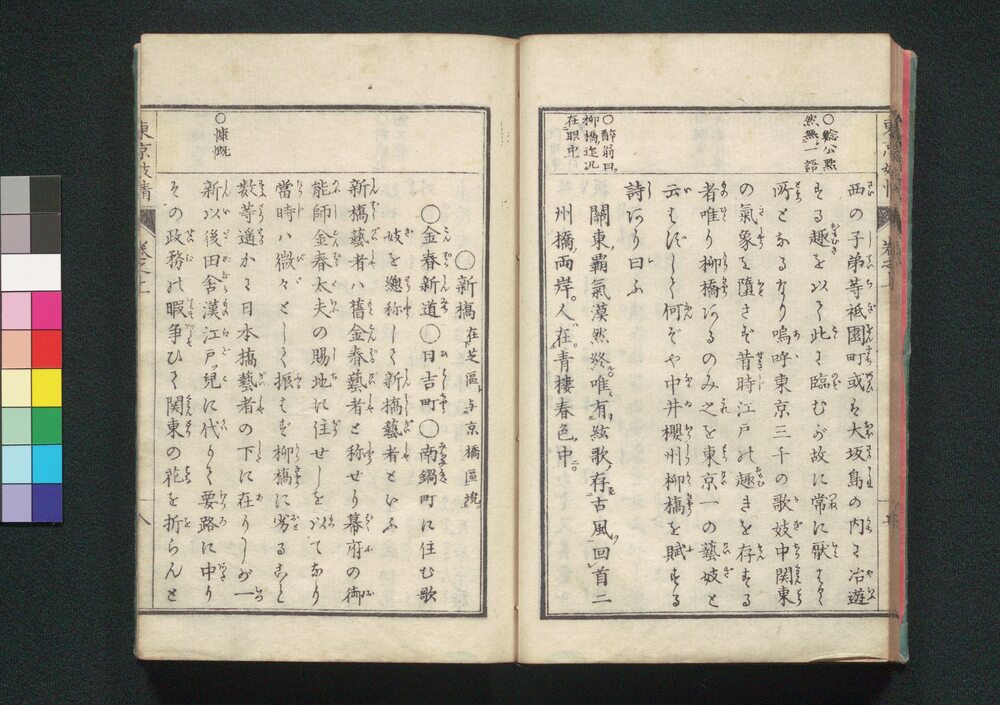 東京妓情
巻之上
○總公點
然無一語
○醉翁曰
柳橋近况
在眼中
西の子弟等祇園町或は大坂島の内に冶遊
する趣を以て此に臨むが故に常に厭はるゝ
所となるなり嗚呼東京三千の歌妓中関東
の氣象を墮さず昔時江戸の趣きを存する
者唯り柳橋あるのみ之を東京一の藝妓と
云はずして何ぞや中井櫻州柳橋を賦する
詩あり曰ふ
關東覇氣漠然終唯有絃歌存古風回首二
州橋両岸人在青樓春色中
○慷慨
○新橋在芝區与京橋區境
○金春新道○日吉町○南鍋町に住む歌
妓を總称して新橋藝者といふ
新橋藝者ハ舊金春藝者と称せり幕府の御
能師金春太夫の賜地に住せしを以てなり
當時ハ微々として振はず柳橋に劣ること
数等遥かに日本橋藝者の下に在りしが一
新以後田舎漢江戸ッ兒に代りて要路に中り
その政務の暇争ひて関東の花を折らんと
東京妓情
巻之上
八